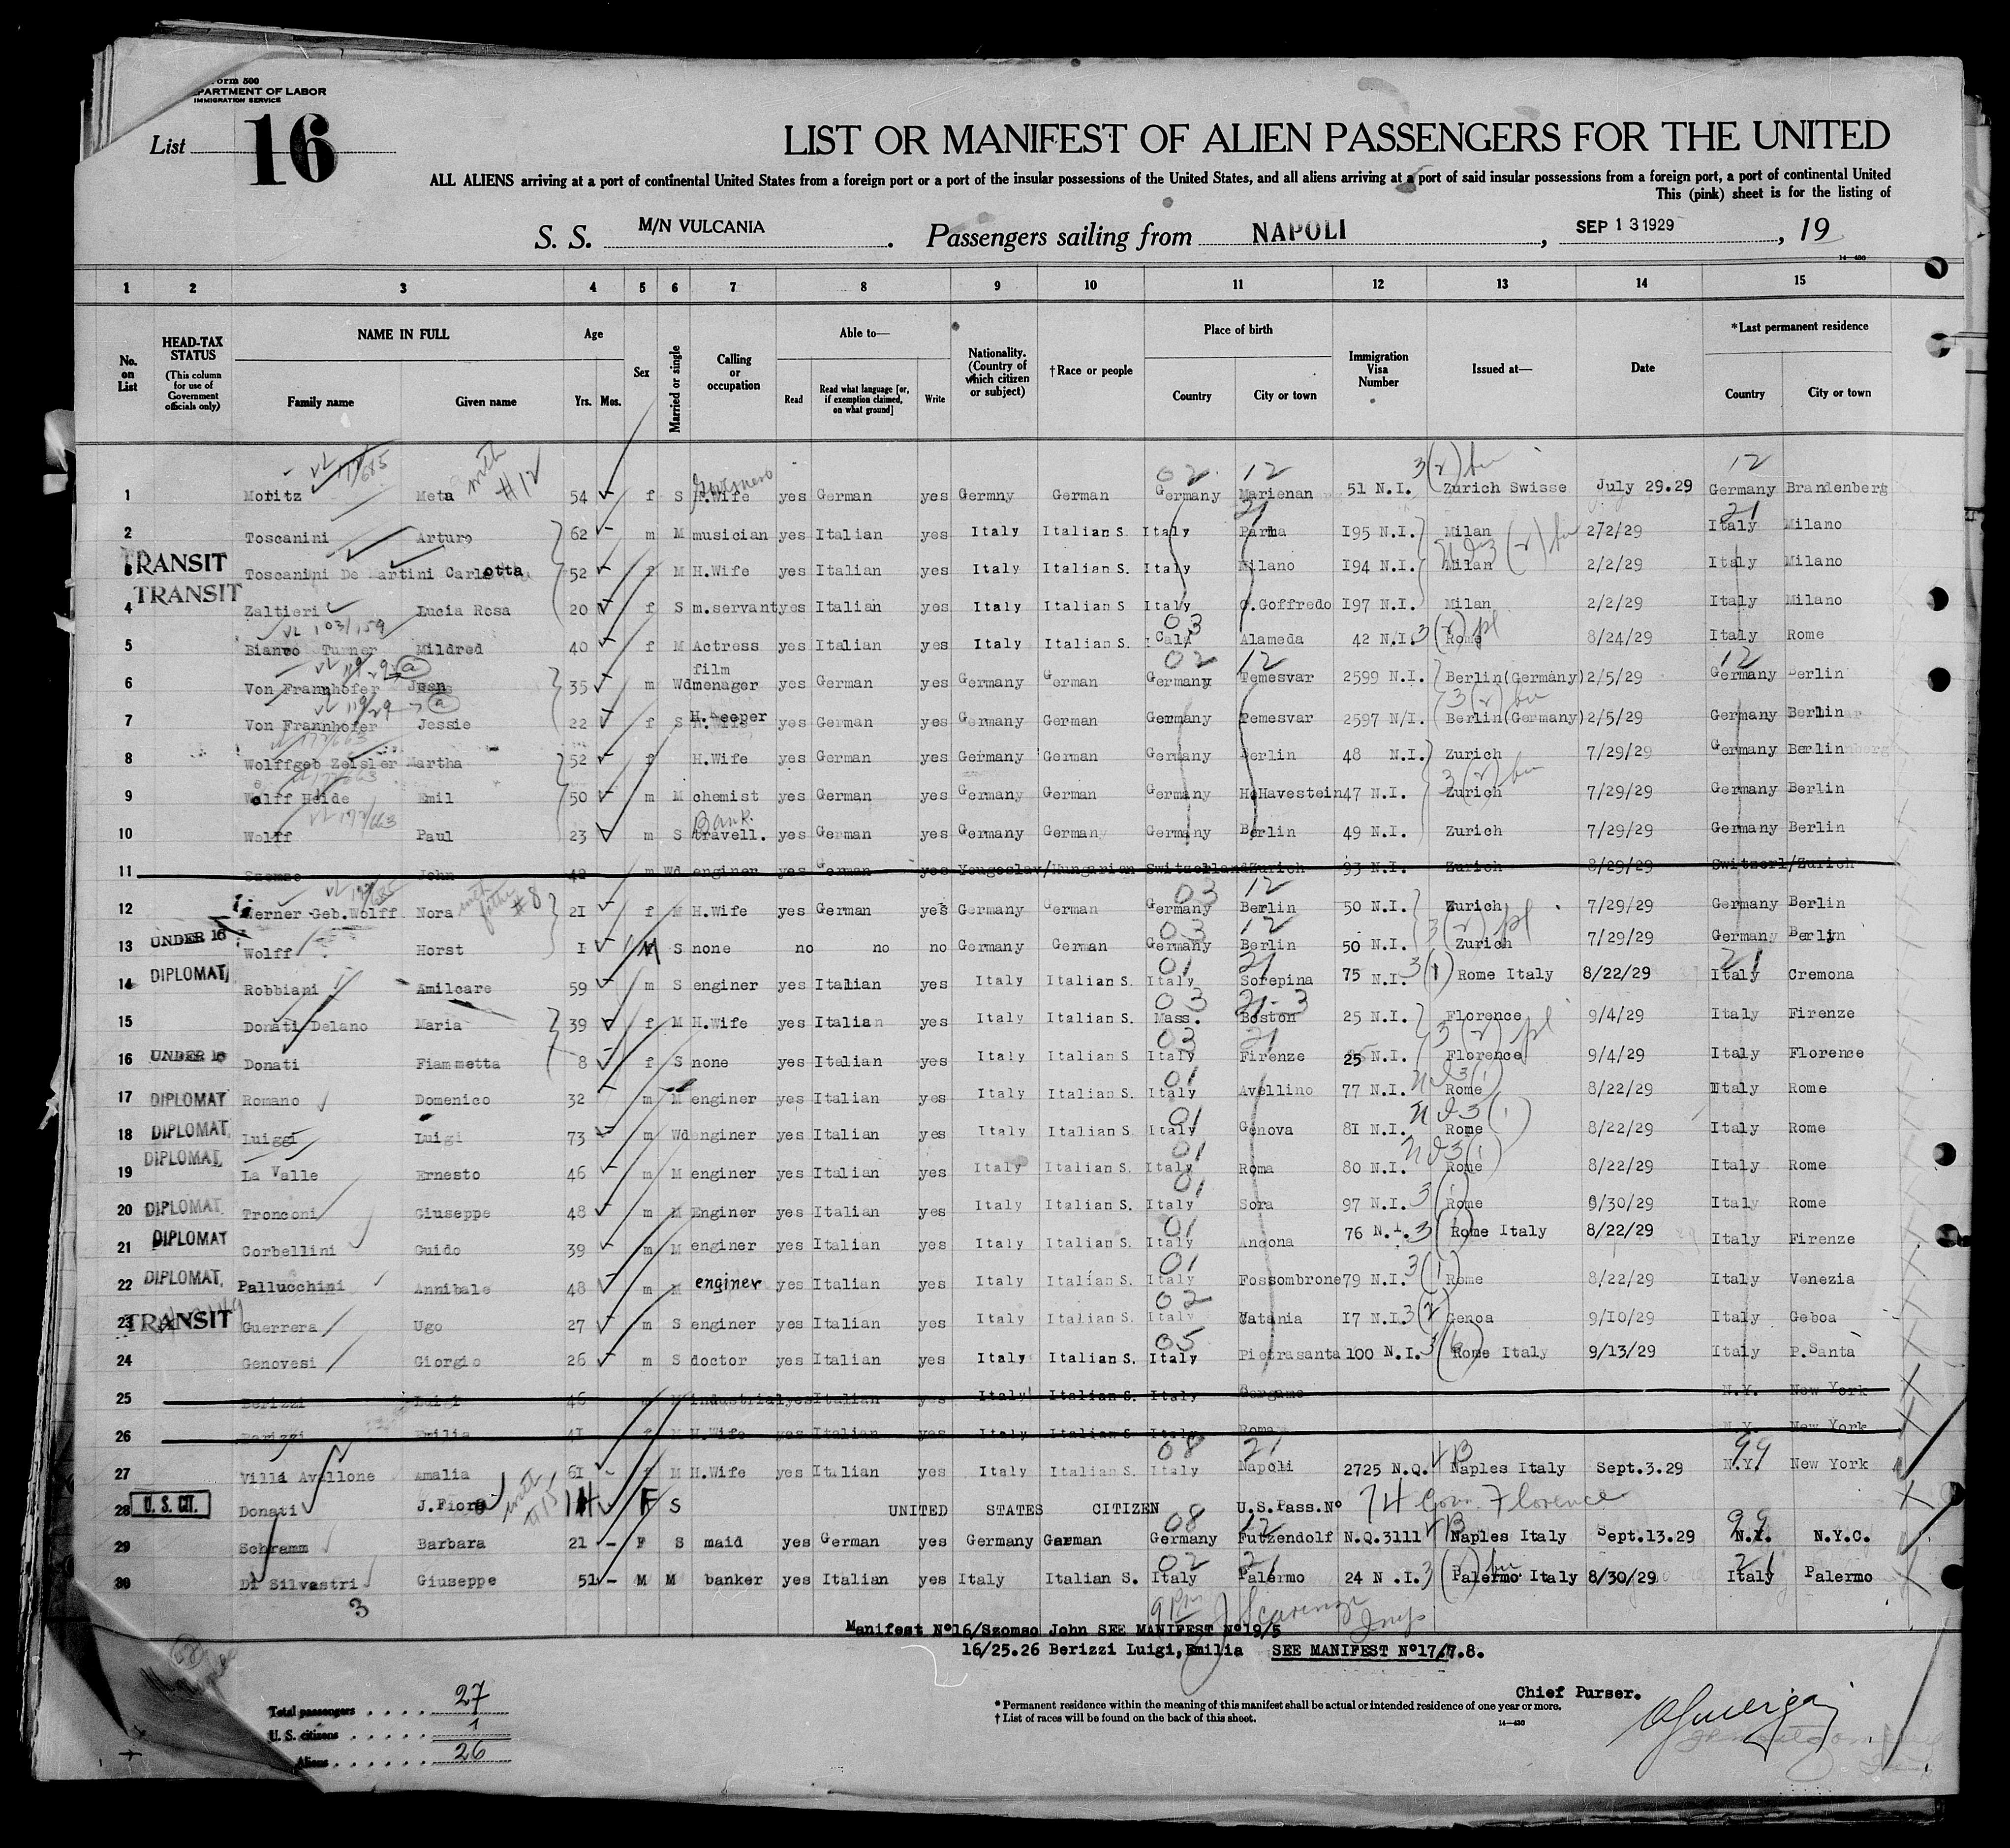 Form 500
DEPARTMENT OF LABOR
IMMIGRATION SERVICE
List 16
LIST OR MANIFEST OF ALIEN PASSENGERS FOR THE UNITED
ALL ALIENS arriving at a port of continental United States from a foreign port or a port of the insular possessions of the United States, and all aliens arriving at a port of said insular possessions from a foreign port, a port of continental United
This (pink) sheet is for the listing of
S. S. M/N VULCANIA. Passengers sailing from NAPOLI, SEP 13 1929, 19
14—430
1 2 3 4 5 6 7 8 9 10 11 12 13 14 15
No. on List
HEAD-TAX STATUS (This column for use of Government officials only)
NAME IN FULL Family name Given name
Age Yrs. Mos.
Sex
Married or single
Calling or occupation
Able to— Read Read what language [or, if exemption claimed, on what ground] Write
Nationality. (Country of which citizen or subject)
†Race or people
Place of birth Country City or town
Immigration Visa Number
Issued at—
Date
*Last permanent residence Country City or town
1 Moritz Meta with #12 54 f S H.Wife yes German yes Germny German Germany Marienan 51 N.I. Zurich Swisse July 29.29 Germany Brandenberg
2 Toscanini Arturo 62 m M musician yes Italian yes Italy Italian S. Italy Parma I95 N.I. Milan 2/2/29 Italy Milano
TRANSIT 3 Toscanini De Martini Carlotta 52 f M H.Wife yes Italian yes Italy Italian S. Italy Milano I94 N.I. Milan 2/2/29 Italy Milano
TRANSIT 4 Zaltieri Lucia Rosa 20 f S m.servant yes Italian yes Italy Italian S Italy C.Goffredo I97 N.I. Milan 2/2/29 Italy Milano
5 Bianco Turner Mildred 40 f M Actress yes Italian yes Italy Italian S. Cala Alameda 42 N.I. Rome 8/24/29 Italy Rome
6 Von Frannhofer Jean 35 m Wd film menager yes German yes Germany German Germany Temesvar 2599 N.I. Berlin(Germany) 2/5/29 Germany Berlin
7 Von Frannhofer Jessie 22 f S H.Keeper yes German yes Germany German Germany Temesvar 2597 N/I. Berlin(Germany) 2/5/29 Germany Berlin
8 Wolffgeb Zeisler Martha 52 f H.Wife yes German yes Germany German Germany Berlin 48 N.I. Zurich 7/29/29 Germany Berlin
9 Wolff Heide Emil 50 m M chemist yes German yes Germany German Germany H.Havestein 47 N.I. Zurich 7/29/29 Germany Berlin
10 Wolff Paul 23 m S Bank travell. yes German yes Germany German Germany Berlin 49 N.I. Zurich 7/29/29 Germany Berlin
11 Szomso John 42 m Wd enginer yes German yes Yougoslav/Hungarian Switzerland Zurich 93 N.I. Zurich 8/29/29 Switzerl/Zurich
12 Werner Geb.Wolff Nora #8 2I f M H.Wife yes German yes Germany German Germany Berlin 50 N.I. Zurich 7/29/29 Germany Berlin
UNDER 16 13 Wolff Horst I M S none no no no Germany German Germany Berlin 50 N.I. Zurich 7/29/29 Germany Berlin
DIPLOMAT 14 Robbiani Amilcare 59 m S enginer yes Italian yes Italy Italian S. Italy Sorepina 75 N.I. Rome Italy 8/22/29 Italy Cremona
15 Donati Delano Maria 39 f M H.Wife yes Italian yes Italy Italian S. Mass. Boston 25 N.I. Florence 9/4/29 Italy Firenze
UNDER 16 16 Donati Fiammetta 8 f S none yes Italian yes Italy Italian S Italy Firenze 25 N.I. Florence 9/4/29 Italy Florence
17 DIPLOMAT Romano Domenico 32 m M enginer yes Italian yes Italy Italian S. Italy Avellino 77 N.I. Rome 8/22/29 Italy Rome
18 DIPLOMAT Luiggi Luigi 73 m Wd enginer yes Italian yes Italy Italian S. Italy Genova 8I N.I. Rome 8/22/29 Italy Rome
19 DIPLOMAT La Valle Ernesto 46 m M enginer yes Italian yes Italy Italian S. Italy Roma 80 N.I. Rome 8/22/29 Italy Rome
20 DIPLOMAT Tronconi Giuseppe 48 m M Enginer yes Italian yes Italy Italian S. Italy Sora 97 N.I. Rome 8/30/29 Italy Rome
21 DIPLOMAT Corbellini Guido 39 m M enginer yes Italian yes Italy Italian S. Italy Ancona 76 N.I. Rome Italy 8/22/29 Italy Firenze
22 DIPLOMAT Pallucchini Annibale 48 m M enginer yes Italian yes Italy Italian S. Italy Fossombrone 79 N.I. Rome 8/22/29 Italy Venezia
23 TRANSIT Guerrera Ugo 27 m S enginer yes Italian yes Italy Italian S. Italy Catania I7 N.I. Genoa 9/I0/29 Italy Geboa
24 Genovesi Giorgio 26 m S doctor yes Italian yes Italy Italian S. Italy Pietrasanta 100 N.I. Rome Italy 9/13/29 Italy P.Santa
25 Berizzi Luigi 46 m M industrial yes Italian yes Italy Italian S. Italy Bergamo N.Y. New York
26 Berizzi Emilia 4I f M H.Wife yes Italian yes Italy Italian S Italy Roma N.Y. New York
27 Villa Avellone Amalia 6I f M H.Wife yes Italian yes Italy Italian S. Italy Napoli 2725 N.Q. Naples Italy Sept.3.29 N.Y. New York
28 U.S. CIT. Donati J.Fiora with #15 14 F S UNITED STATES CITIZEN U.S.Pass.Nº 74 Gov. Florence
29 Schramm Barbara 21 F S maid yes German yes Germany German Germany Futzendolf N.Q.3111 Naples Italy Sept.13.29 N.Y. N.Y.C.
30 Di Silvastri Giuseppe 51 M M banker yes Italian yes Italy Italian S. Italy Palermo 24 N.I. Palermo Italy 8/30/29 Italy Palermo
Manifest Nº16/Szomso John SEE MANIFEST Nº19/5
16/25.26 Berizzi Luigi,Emilia SEE MANIFEST Nº17/7.8.
Chief Purser.
Total passengers 27
U. S. citizens 1
Aliens 26
* Permanent residence within the meaning of this manifest shall be actual or intended residence of one year or more.
† List of races will be found on the back of this sheet.
14—430